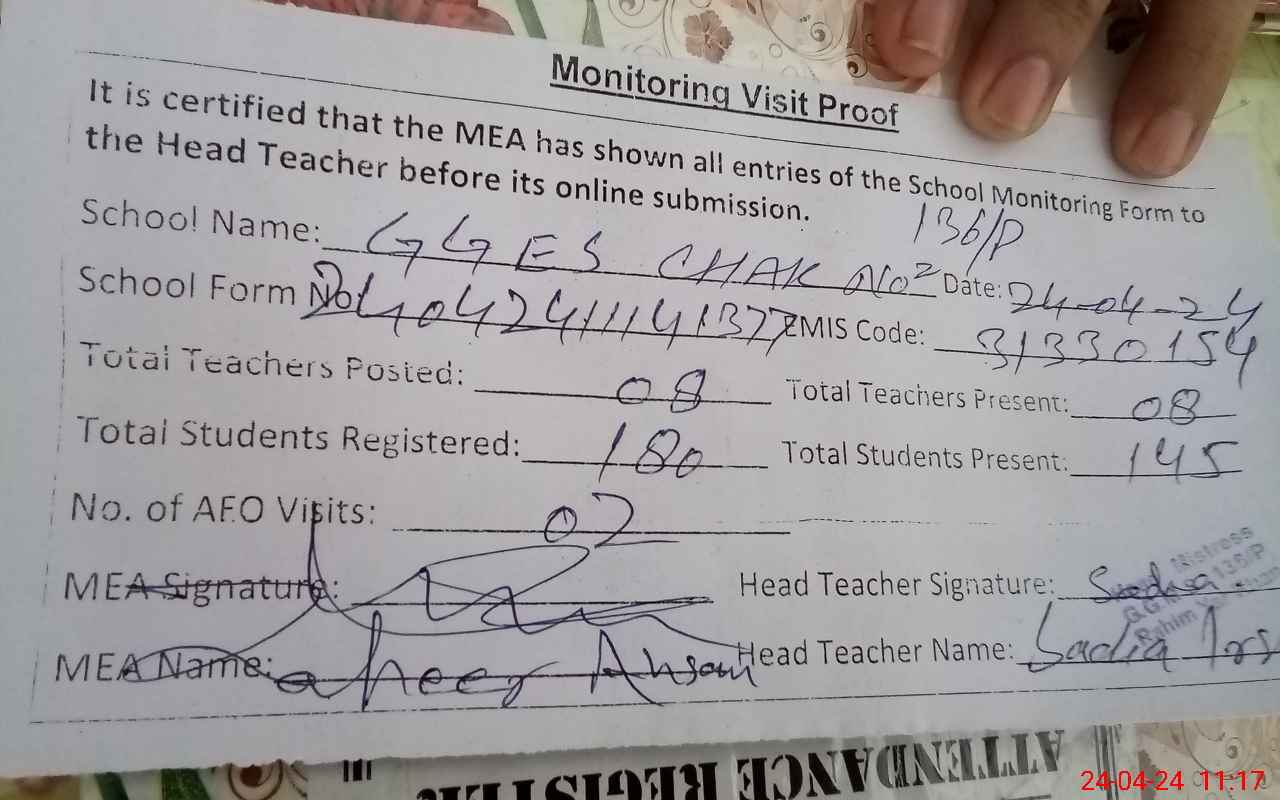 Monitoring Visit Proof
It is certified that the MEA has shown all entries of the School Monitoring Form to
the Head Teacher before its online submission.
136/P
School Name: GGES CHAK No Date: 24-04-24
School Form No EMIS Code: 31330154
Total Teachers Posted: 08 Total Teachers Present: 08
Total Students Registered: 180 Total Students Present: 145
No. of AEO Visits: 02
MEA Signature: Head Teacher Signature: Sadia
MEA Name: Ahsan Head Teacher Name: Sadia
Mistress
136/P
Rahim
ATTENDANCE REGISTER
24-04-24 11:17